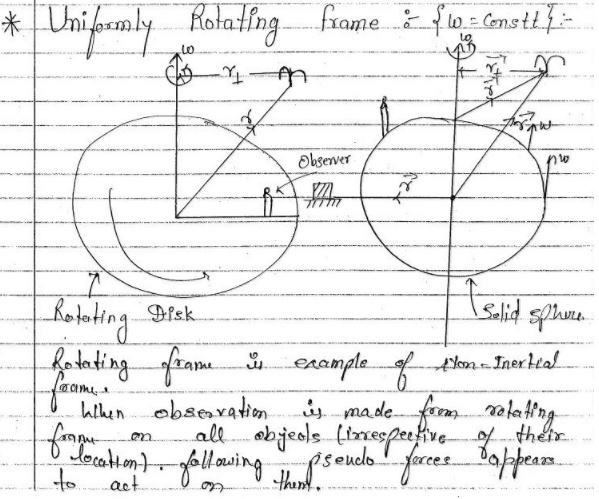 * Uniformly Rotating frame :- {ω = Constt} :-
ω
r⊥
m
r
Observer
ω
r⊥
m
r
r
ω
ω
r
Rotating Disk
Solid sphere.
Rotating frame is example of Non-Inertial
frame.
When observation is made from rotating
frame on all objects (irrespective of their
location). following pseudo forces appears
to act on them.